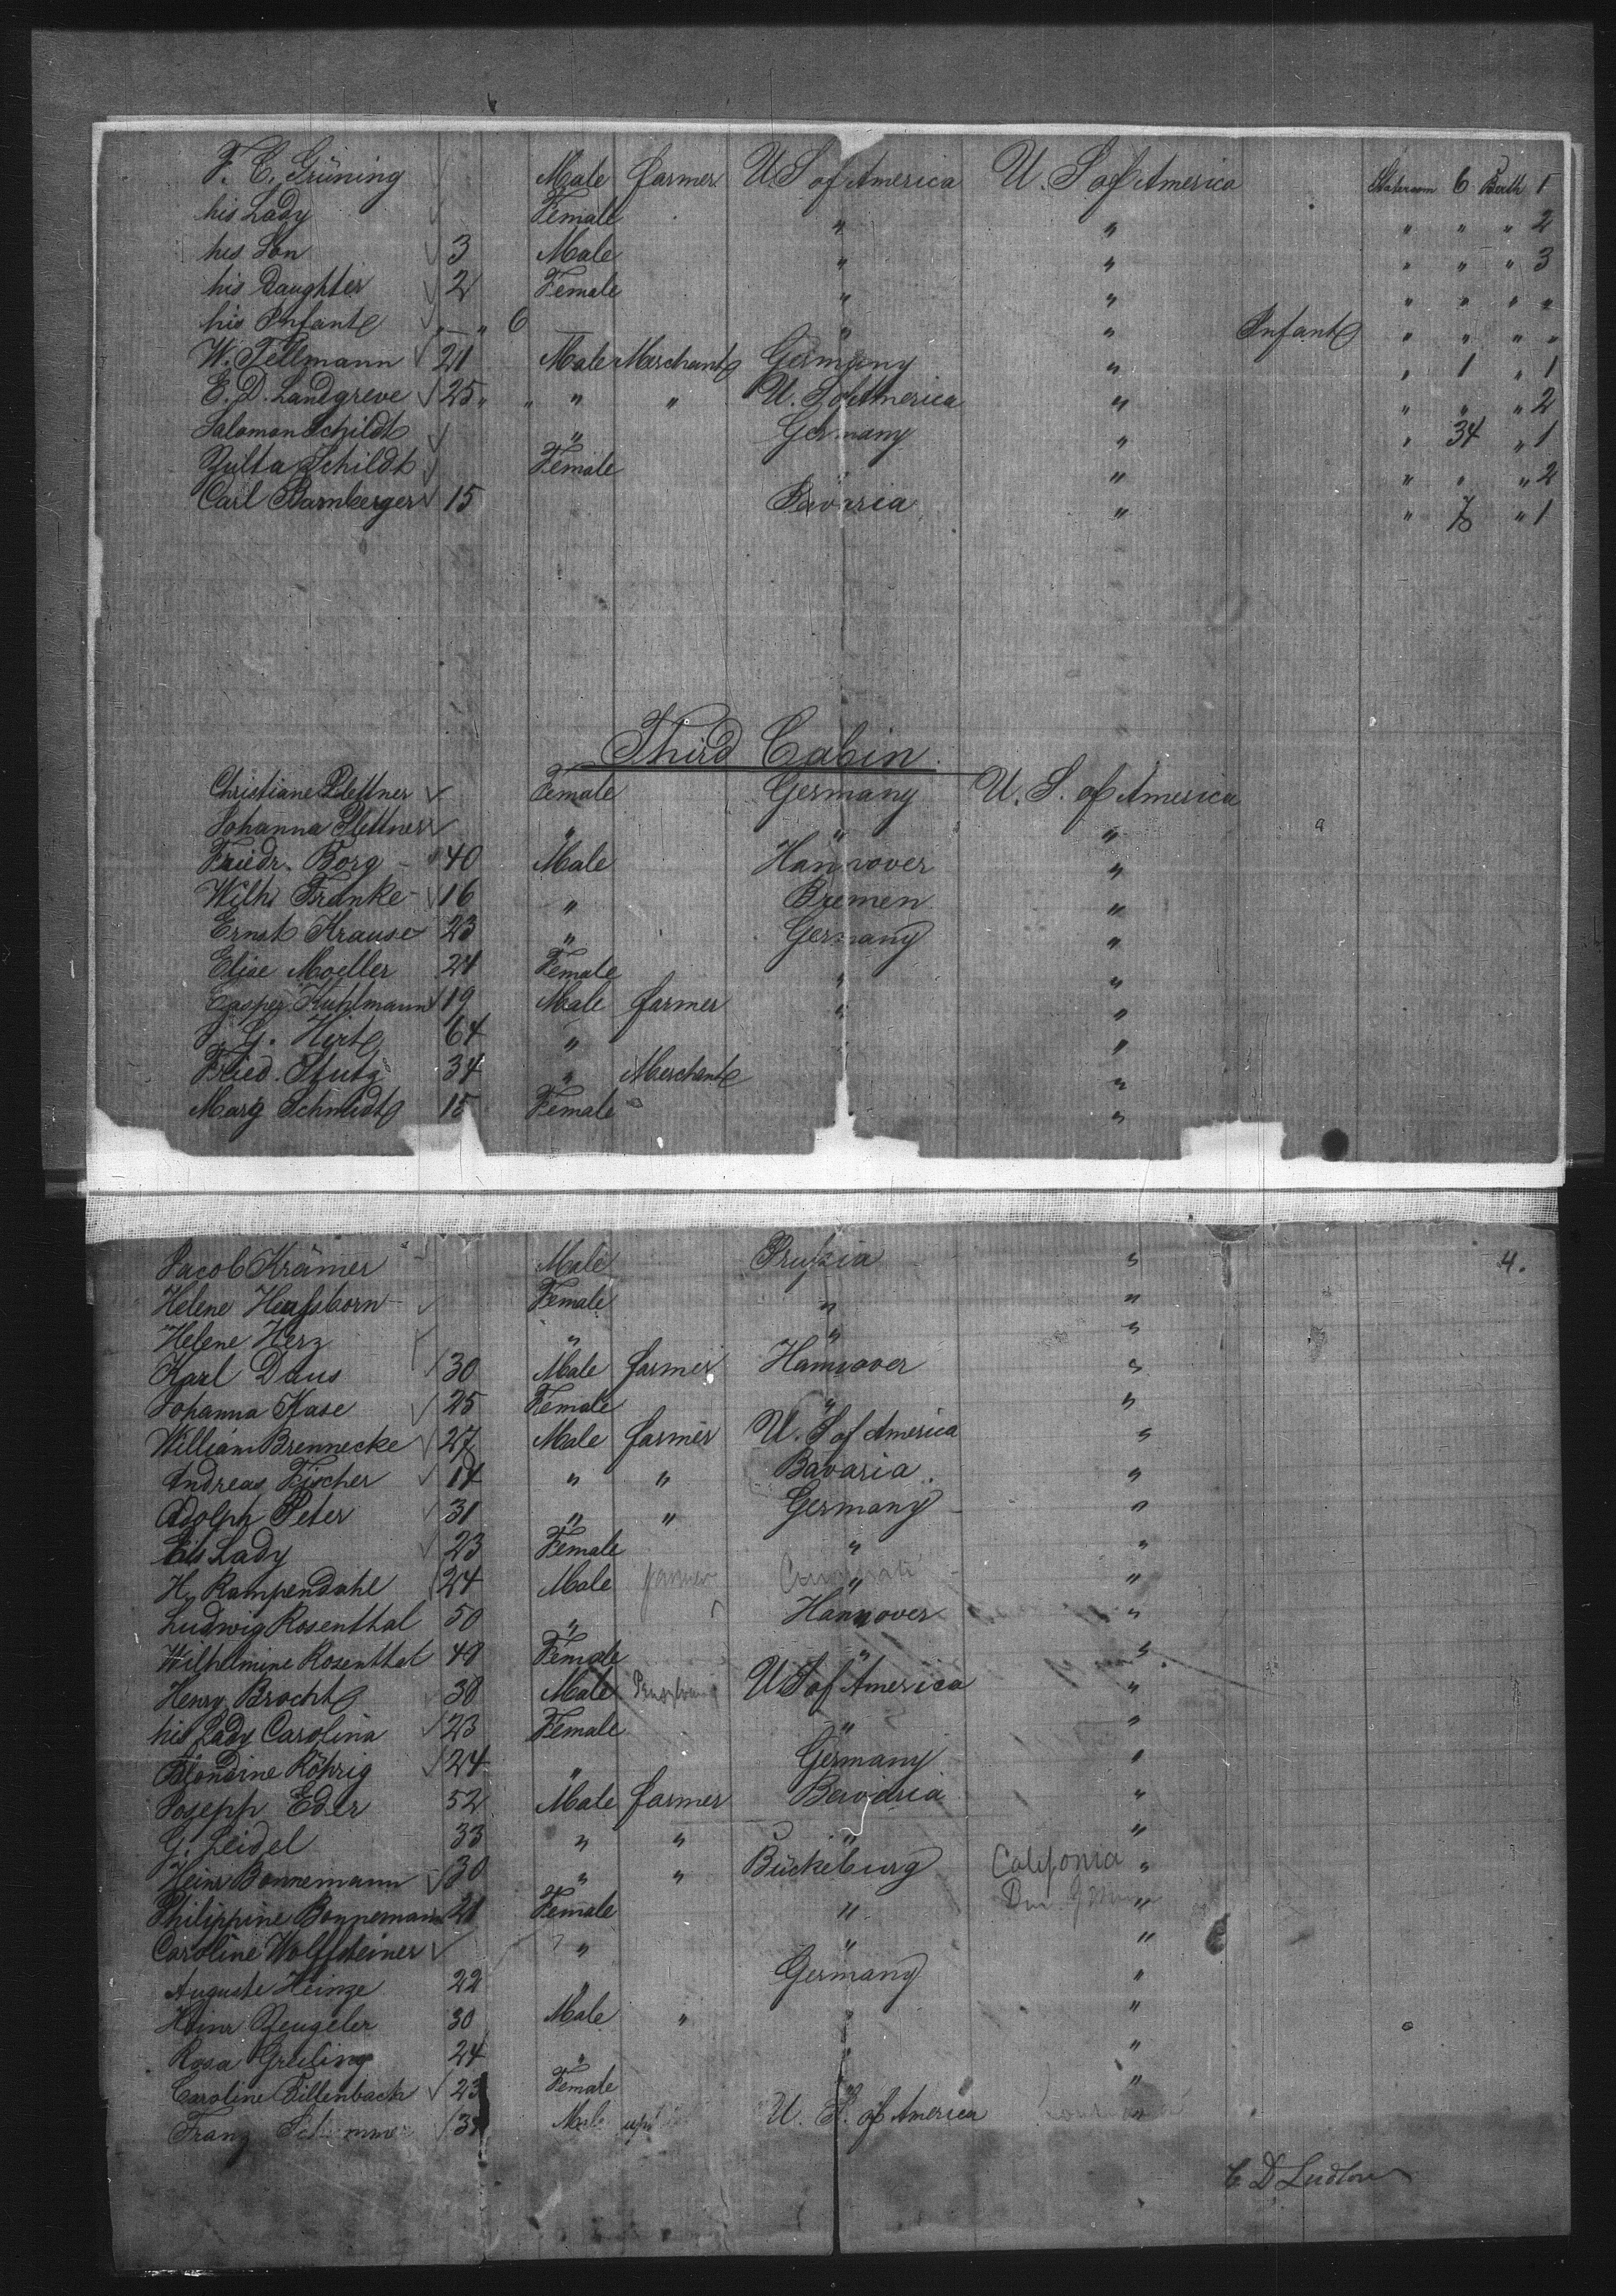 F. C. Grüning Male farmer U S of America U. S of America Stateroom 6 Berth 1
his Lady Female " " " " " 2
his Son 3 Male " " " " " 3
his Daughter 2 Female " " " " " "
his Infant " — " 6 — " " Infant " " " "
W. Tellmann 21 Male Merchant Germany " " 1 " 1
E. D. Landgreve 25 " " " " U. S of America " " " " 2
Salomon Schildt " Germany " " 34 " 1
Julta Schildt Female " " " " " 2
Carl Bamberger 15 Bavaria " " " 1
Third Cabin.
Christiane Plettner Female Germany U. S. of America
Johanna Plettner " " "
Friedr. Borg - 40 Male Hannover "
Wilh. Franke - 16 " Bremen "
Ernst Krause 23 " Germany "
Elise Moeller 24 Female " "
Casper Kuhlmann 19 Male farmer " "
J. G. Hirt 64 " "
Fried. Stutz 34 " Merchant "
Marg Schmidt 15 Female "
Jacob Krämer Male Prussia " 4.
Helene Female " "
Helene Herz " " "
Karl Daus 30 Male farmer Hannover "
Johanna Kase 25 Female " "
William Brennecke 27 Male farmer U. S of America "
Andreas Fischer 14 " " Bavaria "
Adolph Peter 31 " " Germany "
his Lady 23 Female " "
H. Rampendahl 24 Male farmer " "
Ludwig Rosenthal 50 " Hannover "
Wilhelmine Rosenthal 49 Female " "
Henry Bracht 30 Male U S of America "
his Lady Carolina 23 Female " "
Blondine Röhrig 24 " Germany "
Joseph Eder 52 Male farmer Bavaria "
G. Seidel 33 " " " "
Heinr Bonnemann 30 " " Bückeburg California "
Philippine Bonnemann 21 Female " "
Caroline Wolffsteiner " " "
Auguste Heinze 22 " Germany "
Heinr Zeugeler 30 Male " " "
Rosa Greiling 24 " " "
Caroline Dillenbach 23 Female " "
Franz Male U. S. of America "
C. D. Ludlow